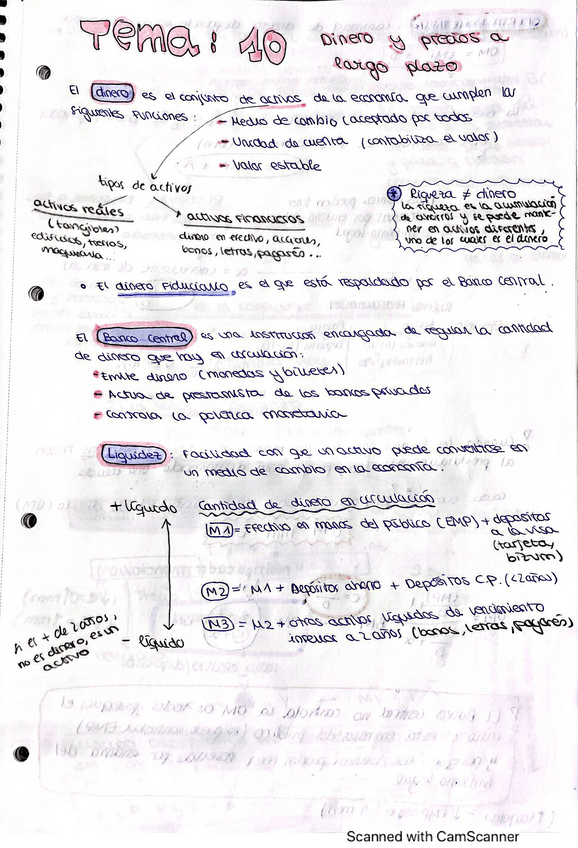 Tema: 10 Dinero y precios a
largo plazo
El dinero es el conjunto de activos de la economía que cumplen las
siguientes funciones: - Medio de cambio (aceptado por todos
- Unidad de cuenta (contabiliza el valor)
- Valor estable
tipos de activos
activos reales
(tangibles)
edificios, tierras,
maquinaria...
activos financieros
dinero en efectivo, acciones,
bonos, letras, pagarés...
* Riqueza ≠ dinero
la riqueza es la acumulación
de activos y se puede mante-
ner en activos diferentes,
uno de los cuales es el dinero
• El dinero fiduciario, es el que está respaldado por el Banco Central.
El Banco Central es una institución encargada de regular la cantidad
de dinero que hay en circulación:
- Emite dinero (monedas y billetes)
- Actúa de prestamista de los bancos privados
- Controla la política monetaria
Liquidez: Facilidad con que un activo puede convertirse en
un medio de cambio en la economía.
+ líquido Cantidad de dinero en circulación
M1 = Efectivo en manos del público (EMP) + depósitos
a la vista
(tarjeta,
bizum)
M2 = M1 + Depósitos ahorro + Depósitos C.P. (<2años)
M3 = M2 + otros activos líquidos de vencimiento
inferior a 2 años (bonos, letras, pagarés)
- líquido
si es + de 2 años,
no es dinero, es un
activo
Scanned with CamScanner